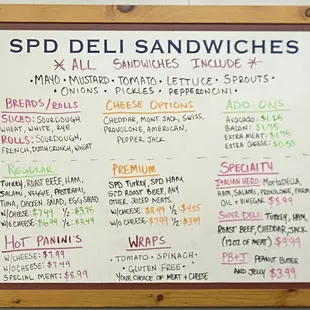 SPD DELI SANDWICHES
* ALL SANDWICHES INCLUDE *
• MAYO • MUSTARD • TOMATO • LETTUCE • SPROUTS •
• ONIONS • PICKLES • PEPPERONCINI •
BREADS/ROLLS
SLICED: SOURDOUGH,
WHEAT, WHITE, RYE
ROLLS: SOURDOUGH,
FRENCH, DUTCH CRUNCH, WHEAT
CHEESE OPTIONS
CHEDDAR, MONT. JACK, SWISS,
PROVOLONE, AMERICAN,
PEPPER JACK
ADD-ONS
AVOCADO $1.25
BACON $1.75
EXTRA MEAT $1.75
EXTRA CHEESE $0.50
REGULAR
TURKEY, ROAST BEEF, HAM,
SALAMI, VEGGIE, PASTRAMI,
TUNA, CHICKEN SALAD, EGG SALAD
W/CHEESE $7.49 ½ $3.75
W/O CHEESE $6.99 ½ $3.49
PREMIUM
SPD TURKEY, SPD HAM
SPD ROAST BEEF, ANY
OTHER SLICED MEATS.
W/CHEESE $8.49 ½ $4.25
W/O CHEESE $7.99 ½ $3.99
SPECIALTY
ITALIAN HERO: MORTADELLA,
HAM, SALAMI, PROVOLONE, PARM
OIL + VINEGAR $8.99
SUPER DELI: TURKEY, HAM,
ROAST BEEF, CHEDDAR, JACK
(12OZ OF MEAT) $9.99
PB+J PEANUT BUTTER
AND JELLY $3.99
HOT PANINI'S
W/CHEESE: $7.99
W/O CHEESE: $7.49
SPECIAL MEAT: $8.99
WRAPS
• TOMATO • SPINACH •
• GLUTEN FREE •
YOUR CHOICE OF MEAT + CHEESE